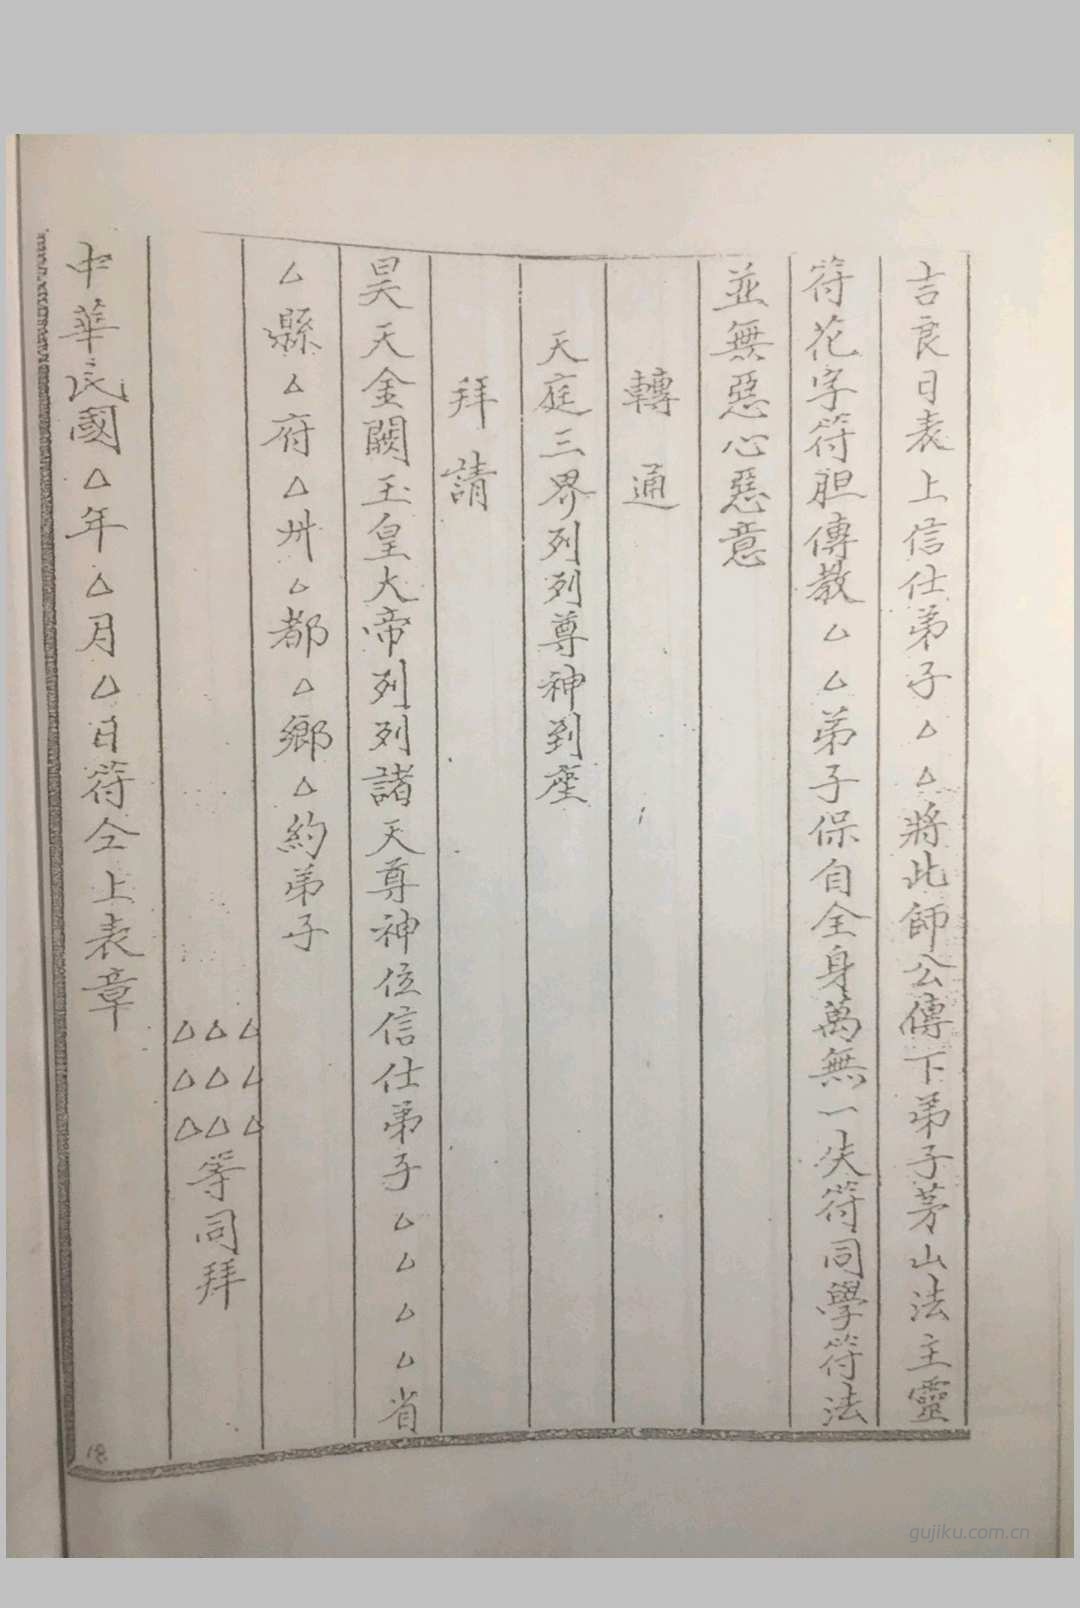 吉良日表上信仕弟子△△將此師公傳下弟子茅山法主靈
符花字符胆傳教△△弟子保自全身萬無一失符同學符法
並無惡心惡意
轉通
天庭三界列列尊神到座
拜請
昊天金闕玉皇大帝列列諸天尊神位信仕弟子△△△△省
△縣△府△卅△都△鄉△約弟子
△△△
△△△
△△△
等同拜
中華民國△年△月△日符仝上表章
18
gujiku.com.cn